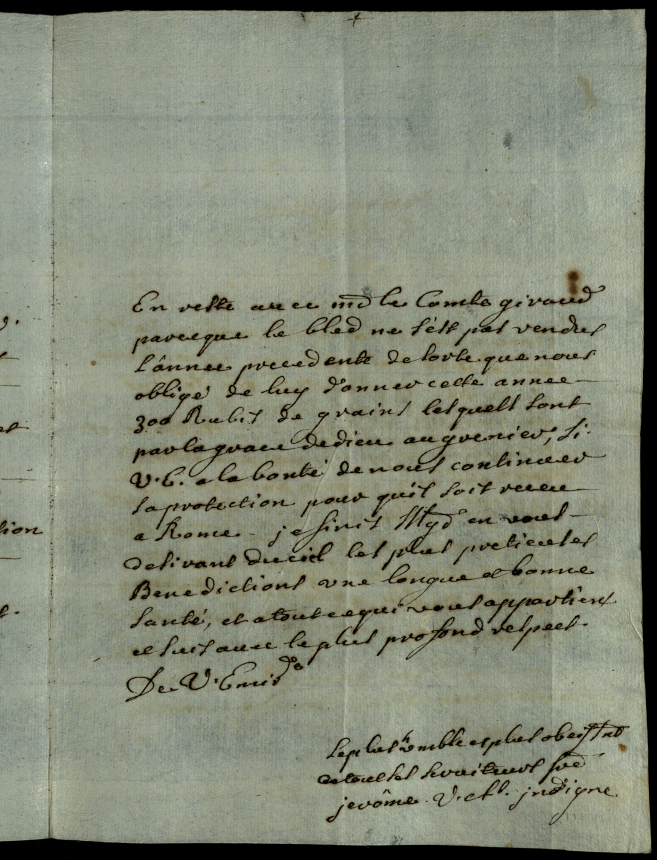 En reste avec md le Comte giraud
parceque le bled ne s'est pas vendus
l'ânnee precedente de sorte que nous
obligé de luy d'onner cette annee
300 Rubis de grains lesquels sont
par la grace de dieu au grenier, si
V. E. a la bonté de nous continuer
sa protection pour quil soit receu
a Rome. je finis Mgd en vous
desirant du ciel les plus pretieuses
Benedictions une longue et bonne
santé, et a tout ce qui vous appartient
et suis avec le plus profond respect.
De V. Emis
le plus humble et plus obeisst
de tous ses serviteurs
jerôme. indigne
tion